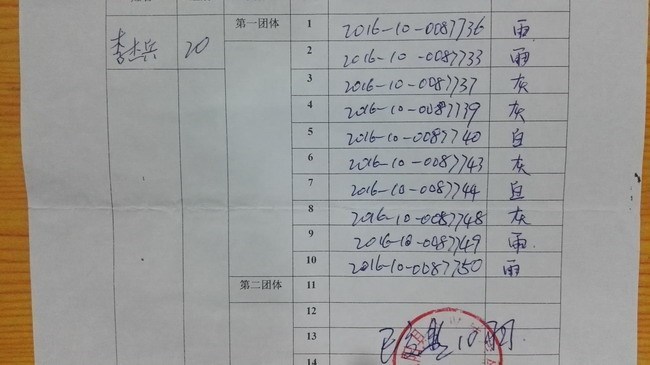 李杰兵 20 第一团体 1 2016-10-0087736 雨
2 2016-10-0087733 雨
3 2016-10-0087737 灰
4 2016-10-0087739 灰
5 2016-10-0087740 白
6 2016-10-0087743 灰
7 2016-10-0087744 白
8 2016-10-0087748 灰
9 2016-10-0087749 雨
10 2016-10-0087750 雨
第二团体 11
12
13
14